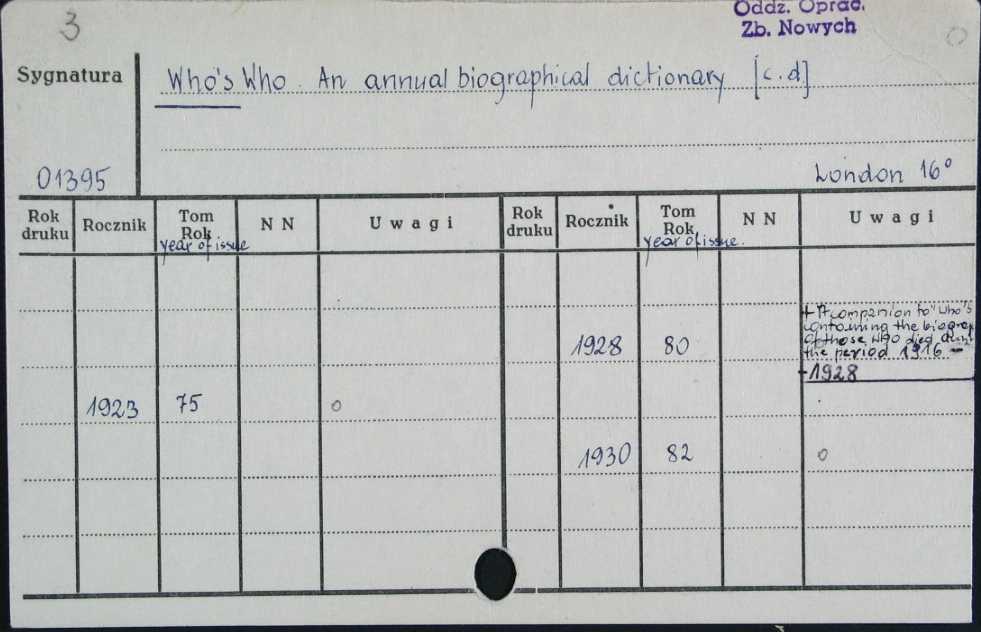 3
Oddz. Oprac.
Zb. Nowych
0
Sygnatura
Who's Who. An annual biographical dictionary [c.d.]
01395
London 16°
Rok druku Rocznik Tom Rok year of issue N N Uwagi Rok druku Rocznik Tom Rok year of issue. N N Uwagi
+ A companion to "Who's
containing the biograp
of those who died during
1928 80 the period 1916 -
-1928
1923 75 0
1930 82 0